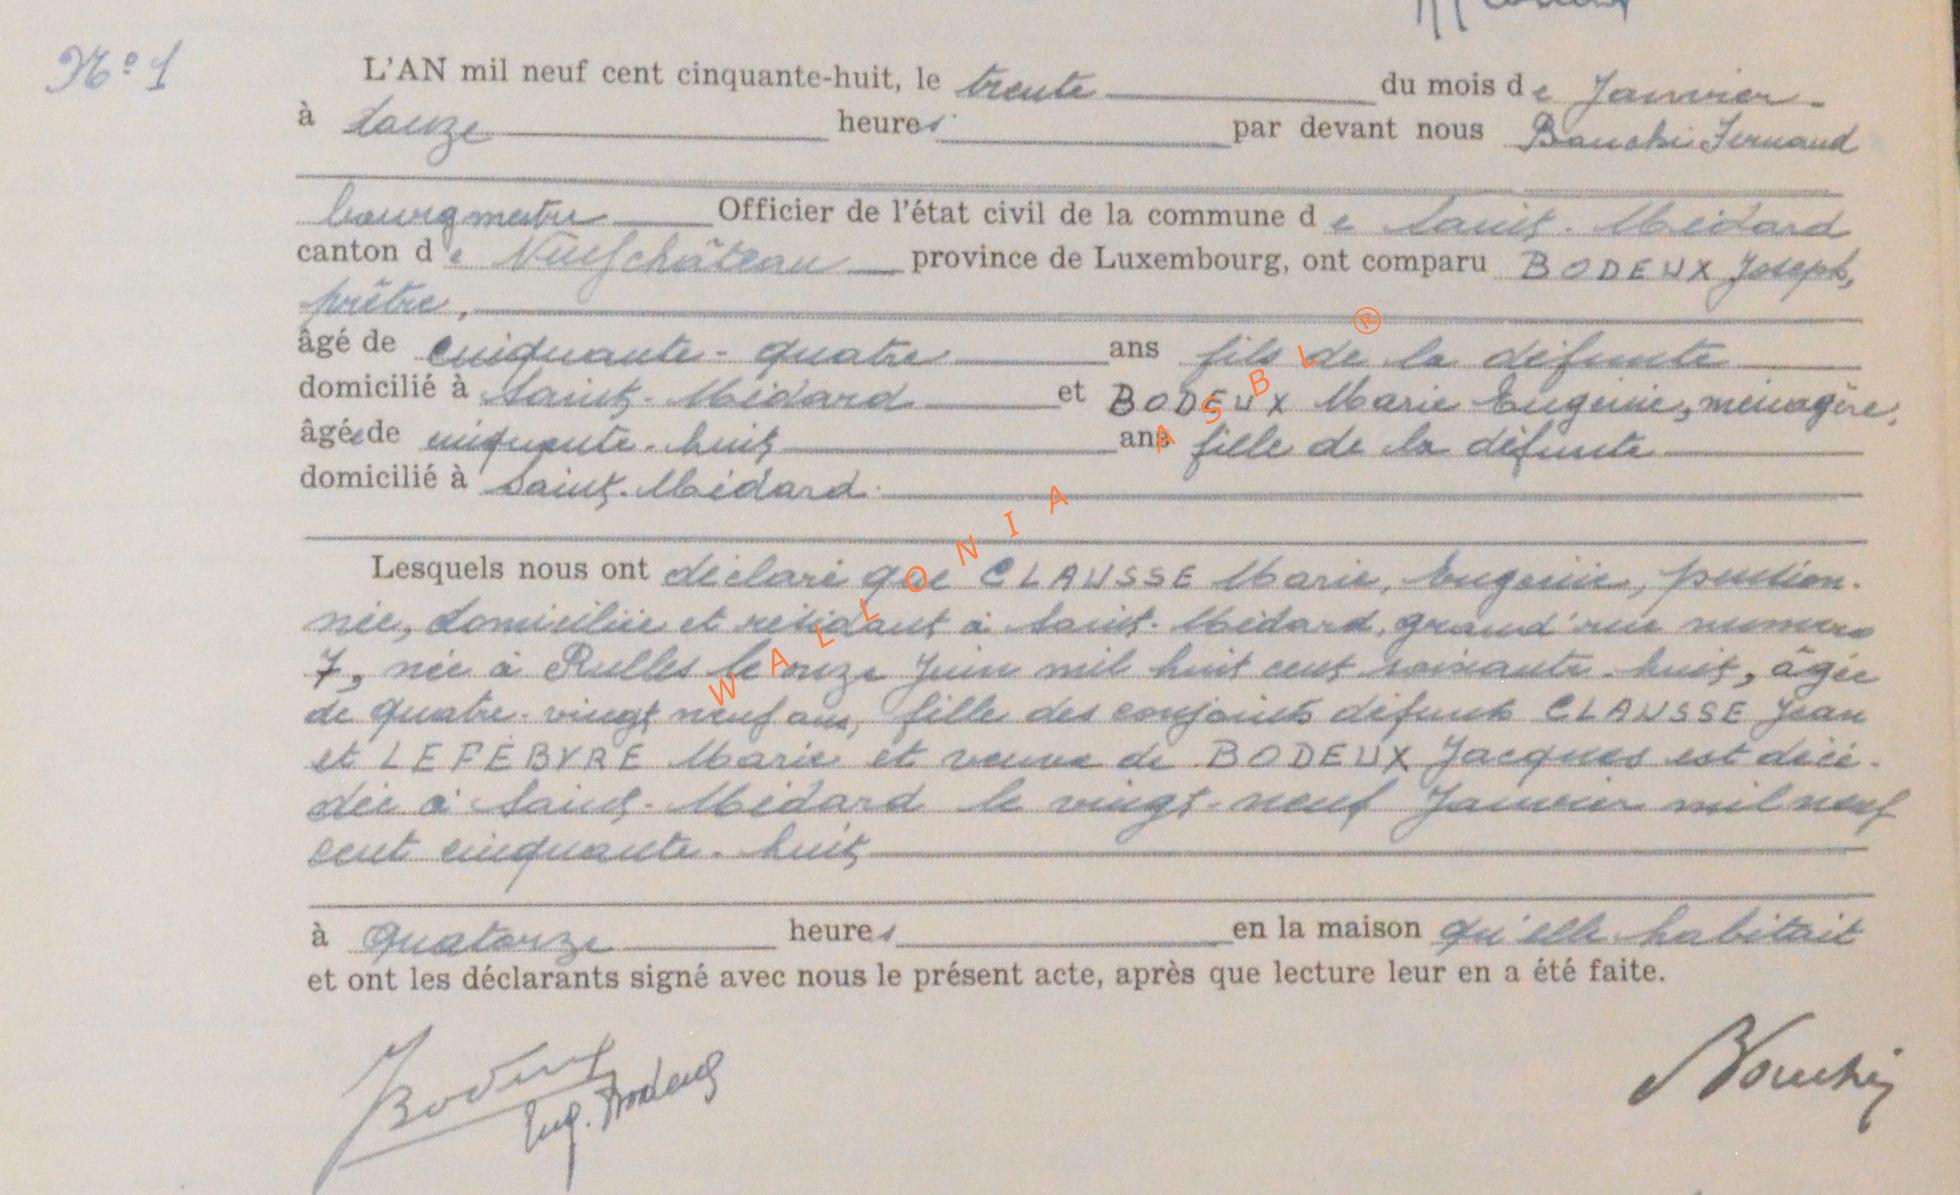 N° 1
L'AN mil neuf cent cinquante-huit, le trente du mois de Janvier
à douze heures par devant nous Bauchi Fernand
bourgmestre Officier de l'état civil de la commune de Saint-Médard
canton de Neufchâteau province de Luxembourg, ont comparu BODEUX Joseph,
prêtre,
âgé de cinquante-quatre ans fils de la défunte
domicilié à Saint-Médard et BODEUX Marie Eugenie, ménagère,
âgée de cinquante-huit ans fille de la défunte
domicilié à Saint-Médard.
Lesquels nous ont déclaré que CLAUSSE Marie, Eugenie, pension-
née, domiciliée et résidant à Saint-Médard, grand'rue numéro
7, née à Rulles le onze Juin mil huit cent soixante-huit, âgée
de quatre-vingt neuf ans, fille des conjoints défunts CLAUSSE Jean
et LEFÈBVRE Marie et veuve de BODEUX Jacques est décé-
dée à Saint-Médard le vingt-neuf Janvier mil neuf
cent cinquante-huit
à quatorze heures en la maison qu'elle habitait
et ont les déclarants signé avec nous le présent acte, après que lecture leur en a été faite.
JBodeux
Eug. Bodeux
WALLONIA ASBL ®